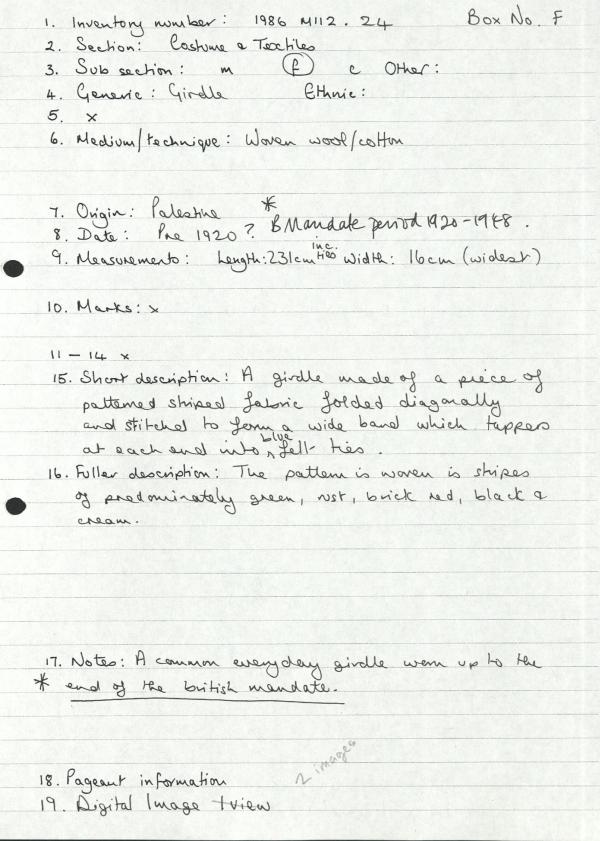 1. Inventory number: 1986 M112.24 Box No. F
2. Section: Costume & Textiles
3. Sub section: m f c Other:
4. Generic: Girdle Ethnic:
5. x
6. Medium/technique: Woven wool/cotton
7. Origin: Palestine *
8. Date: Pre 1920? B Mandate period 1920-1948.
9. Measurements: Length: 231cm inc. ties Width: 16cm (widest)
10. Marks: x
11 - 14 x
15. Short description: A girdle made of a piece of
patterned striped fabric folded diagonally
and stitched to form a wide band which tappers
at each end into blue felt ties.
16. Fuller description: The pattern is woven is stripes
of predominately green, rust, brick red, black &
cream.
17. Notes: A common everyday girdle worn up to the
* end of the british mandate.
2 images
18. Pageant information
19. Digital Image + view